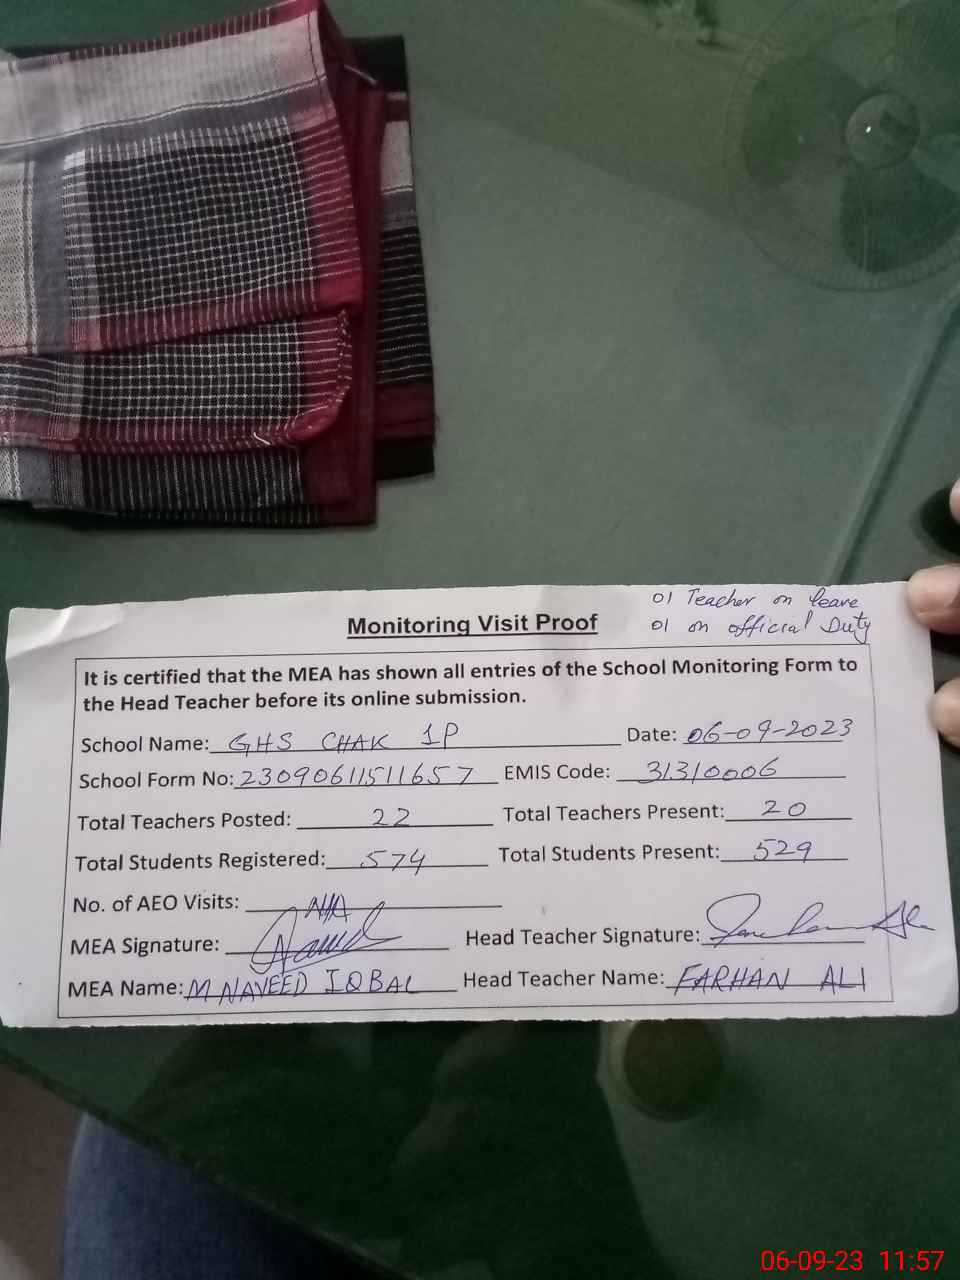 01 Teacher on leave
Monitoring Visit Proof
01 on official Duty
It is certified that the MEA has shown all entries of the School Monitoring Form to
the Head Teacher before its online submission.
School Name: GHS CHAK 1P Date: 06-09-2023
School Form No: 23090611511657 EMIS Code: 31310006
Total Teachers Posted: 22 Total Teachers Present: 20
Total Students Registered: 574 Total Students Present: 529
No. of AEO Visits: N/A
MEA Signature: Head Teacher Signature:
MEA Name: M NAVEED IQBAL Head Teacher Name: FARHAN ALI
06-09-23 11:57